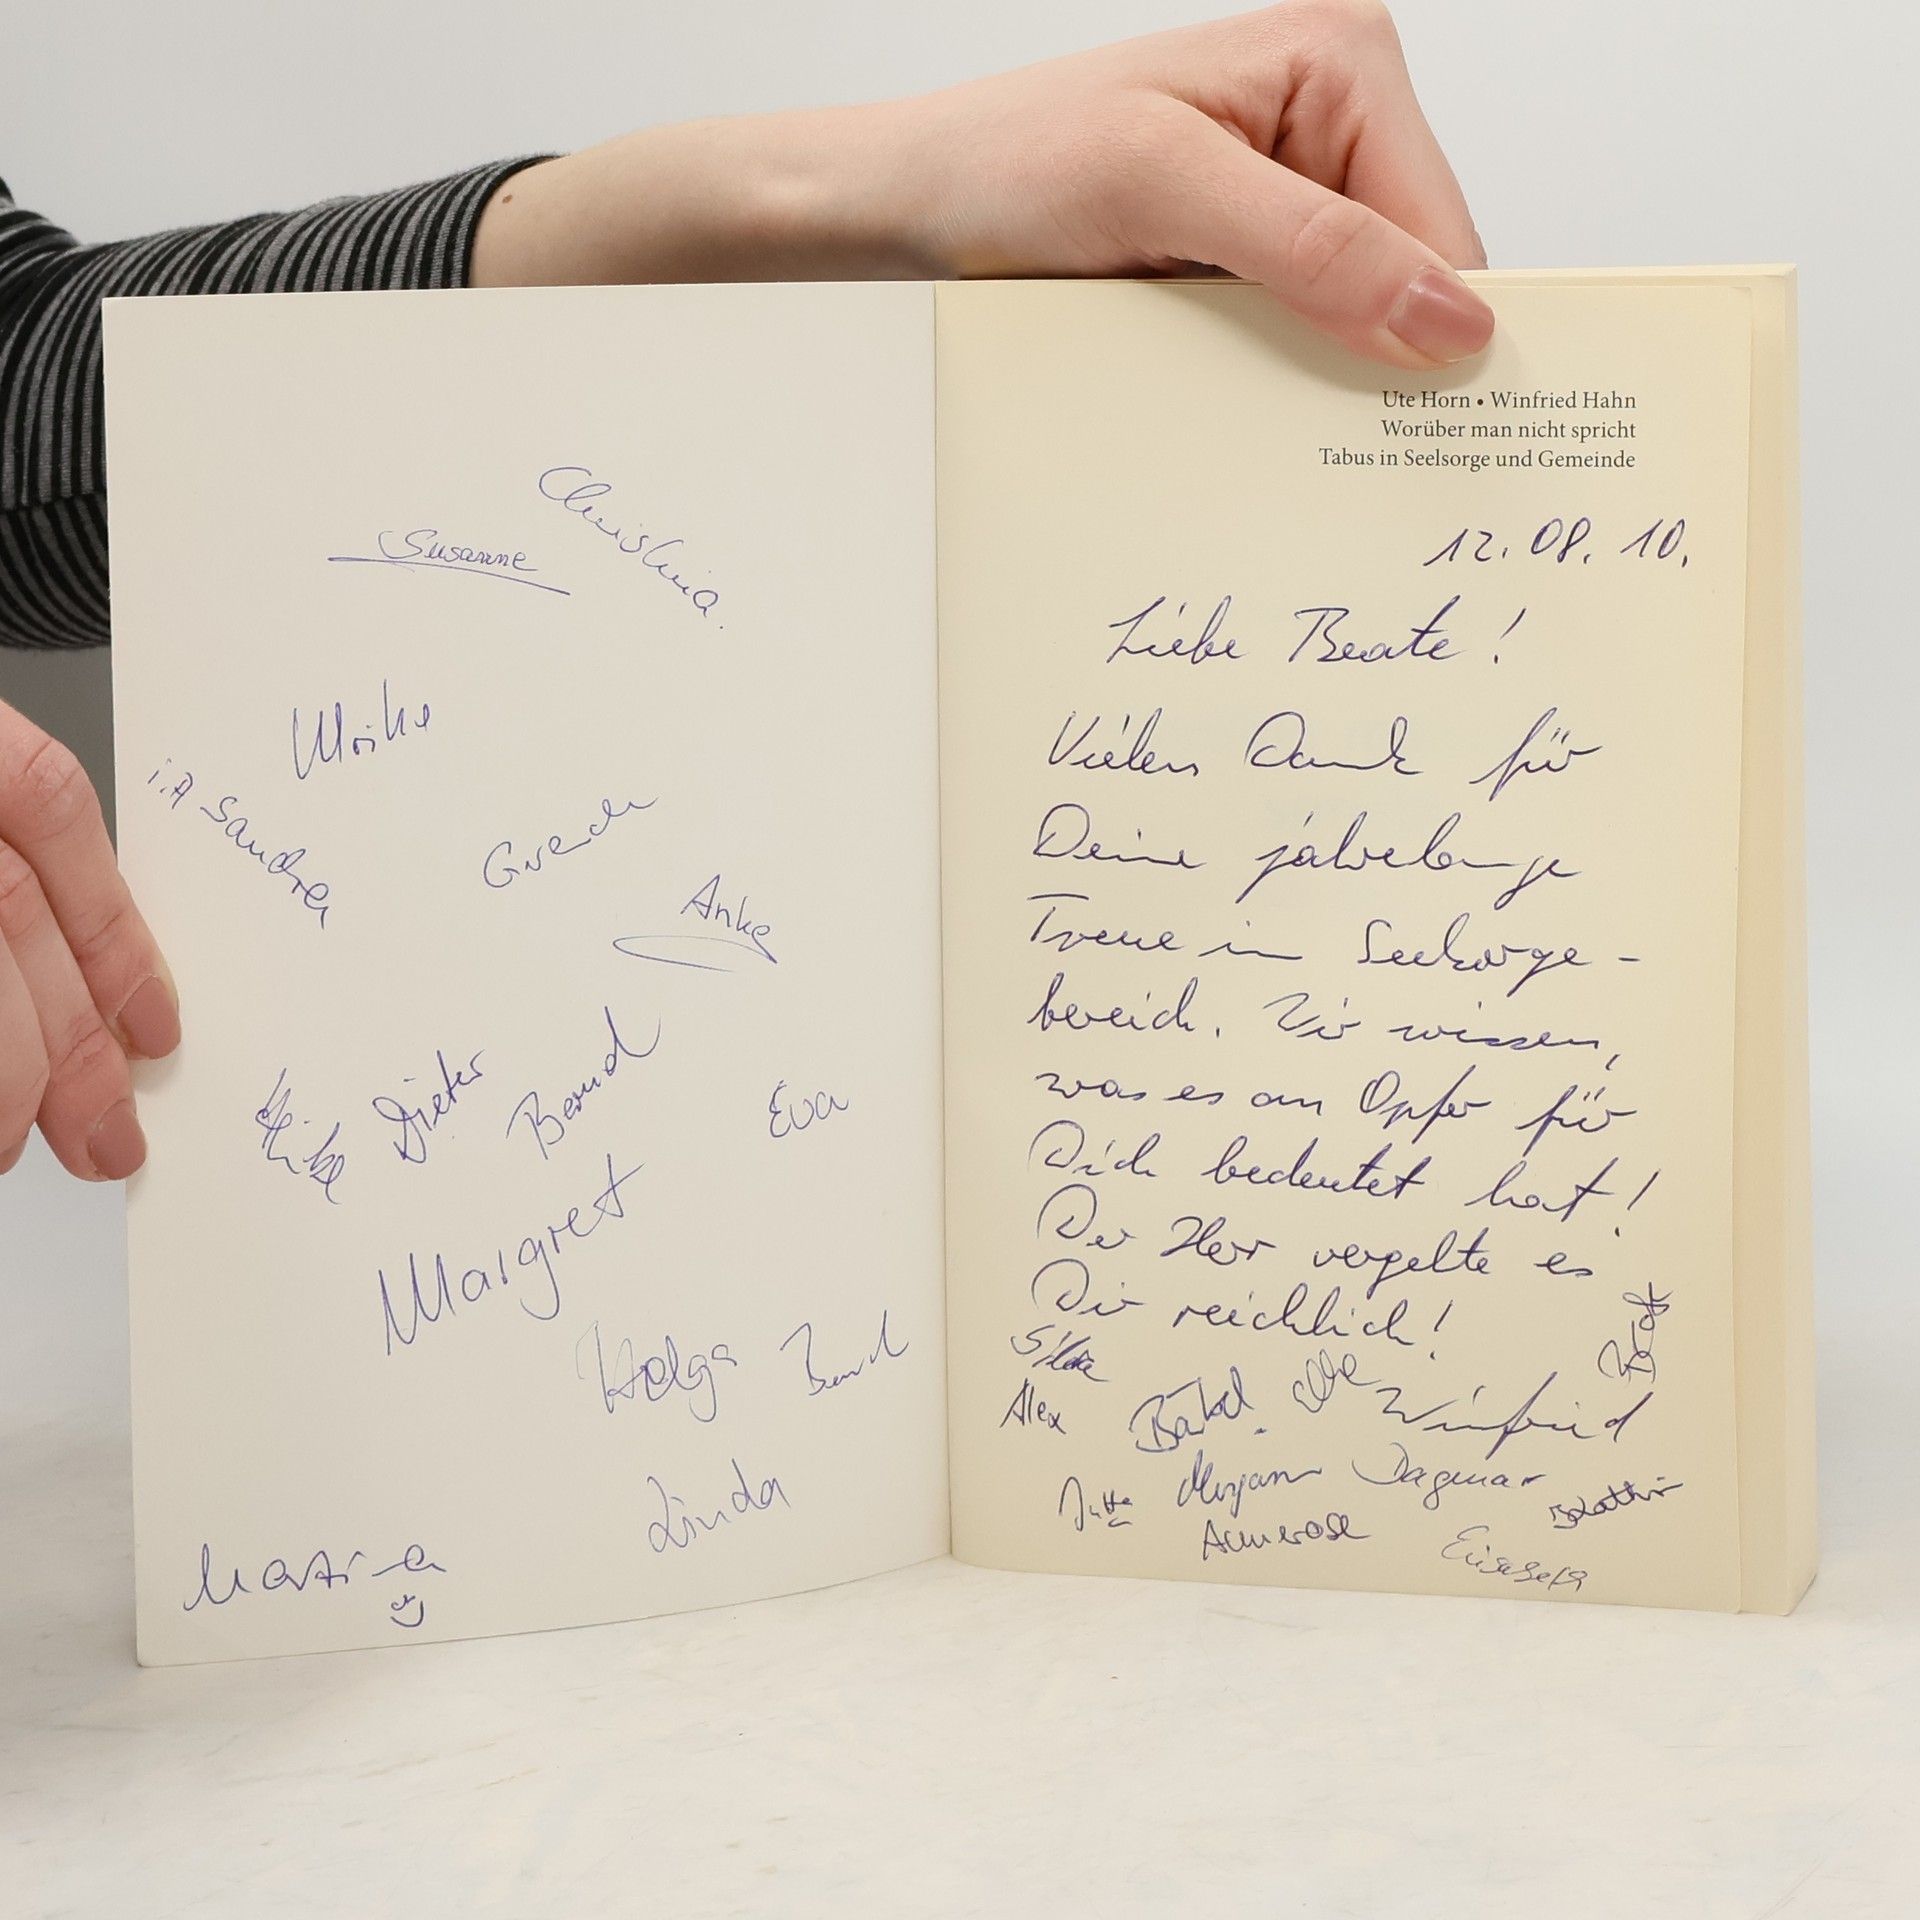 Christina.
Susanne
Ulrike
i.A Sandra
Anke
Heike
Dieter
Bernd
Eva
Margret
Helga
Bernd
Linda
Martina
Ute Horn • Winfried Hahn
Worüber man nicht spricht
Tabus in Seelsorge und Gemeinde
12. 08. 10.
Liebe Beate!
Vielen Dank für
Deine jahrelange
Treue im Seelsorge-
bereich. Wir wissen,
was es an Opfer für
Dich bedeutet hat!
Der Herr vergelte es
Dir reichlich!
Silke
Alex
Winfried
Jutta
Mirjam
Dagmar
Kathrin
Annerose
Elisabeth